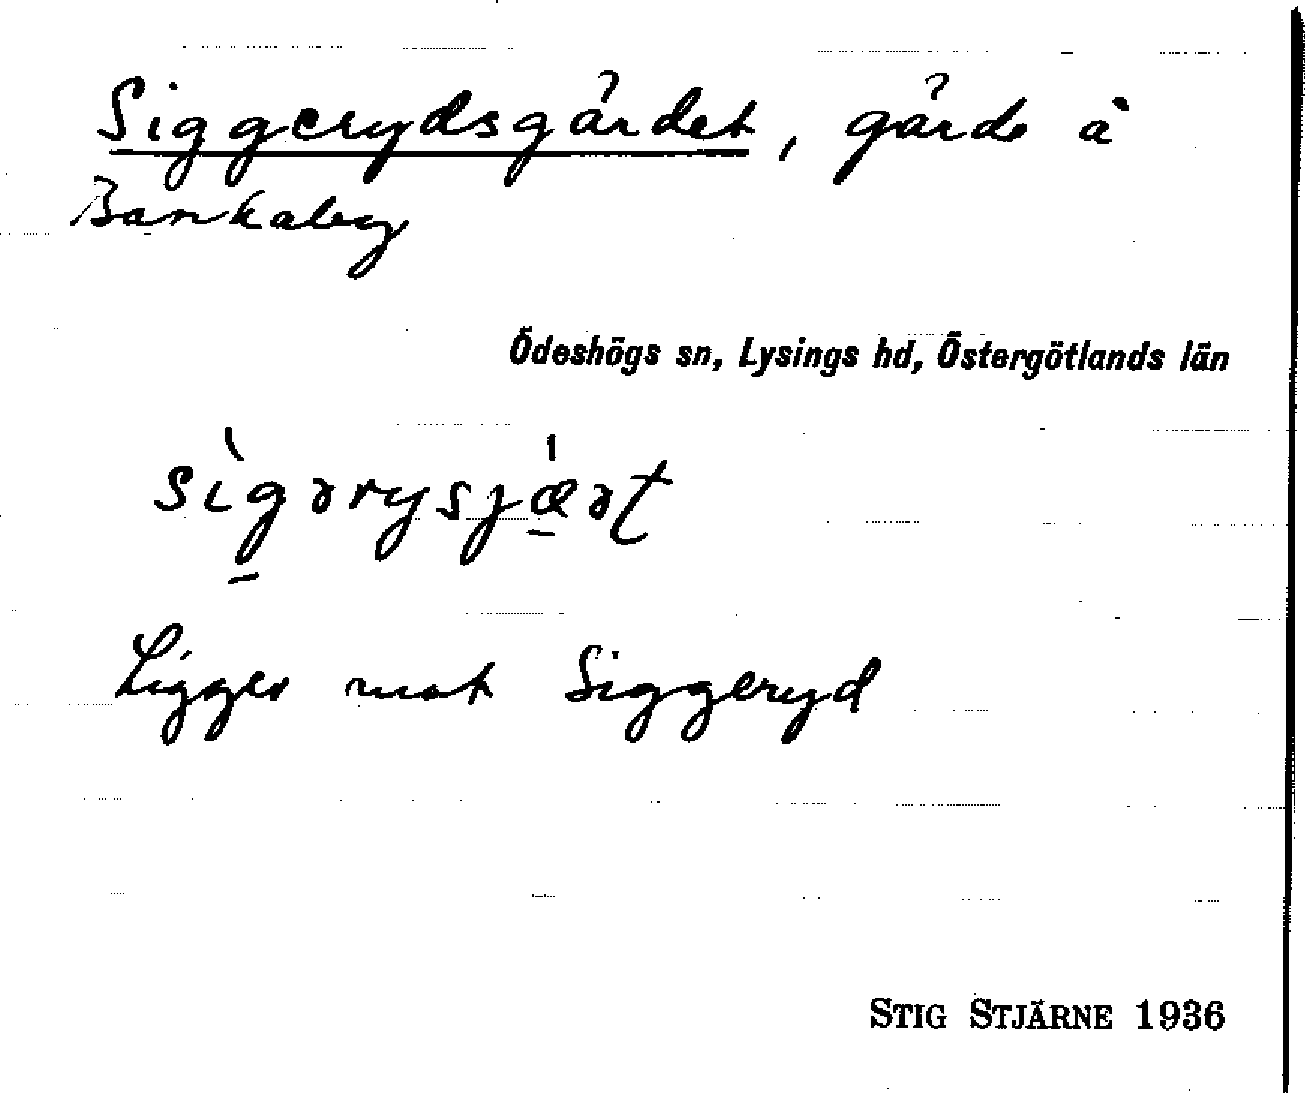 Siggerydsgärdet, gärde å
Bankaby
Ödeshögs sn, Lysings hd, Östergötlands län
sìgərysjæ̀ət
Ligger mot Siggeryd
STIG STJÄRNE 1936